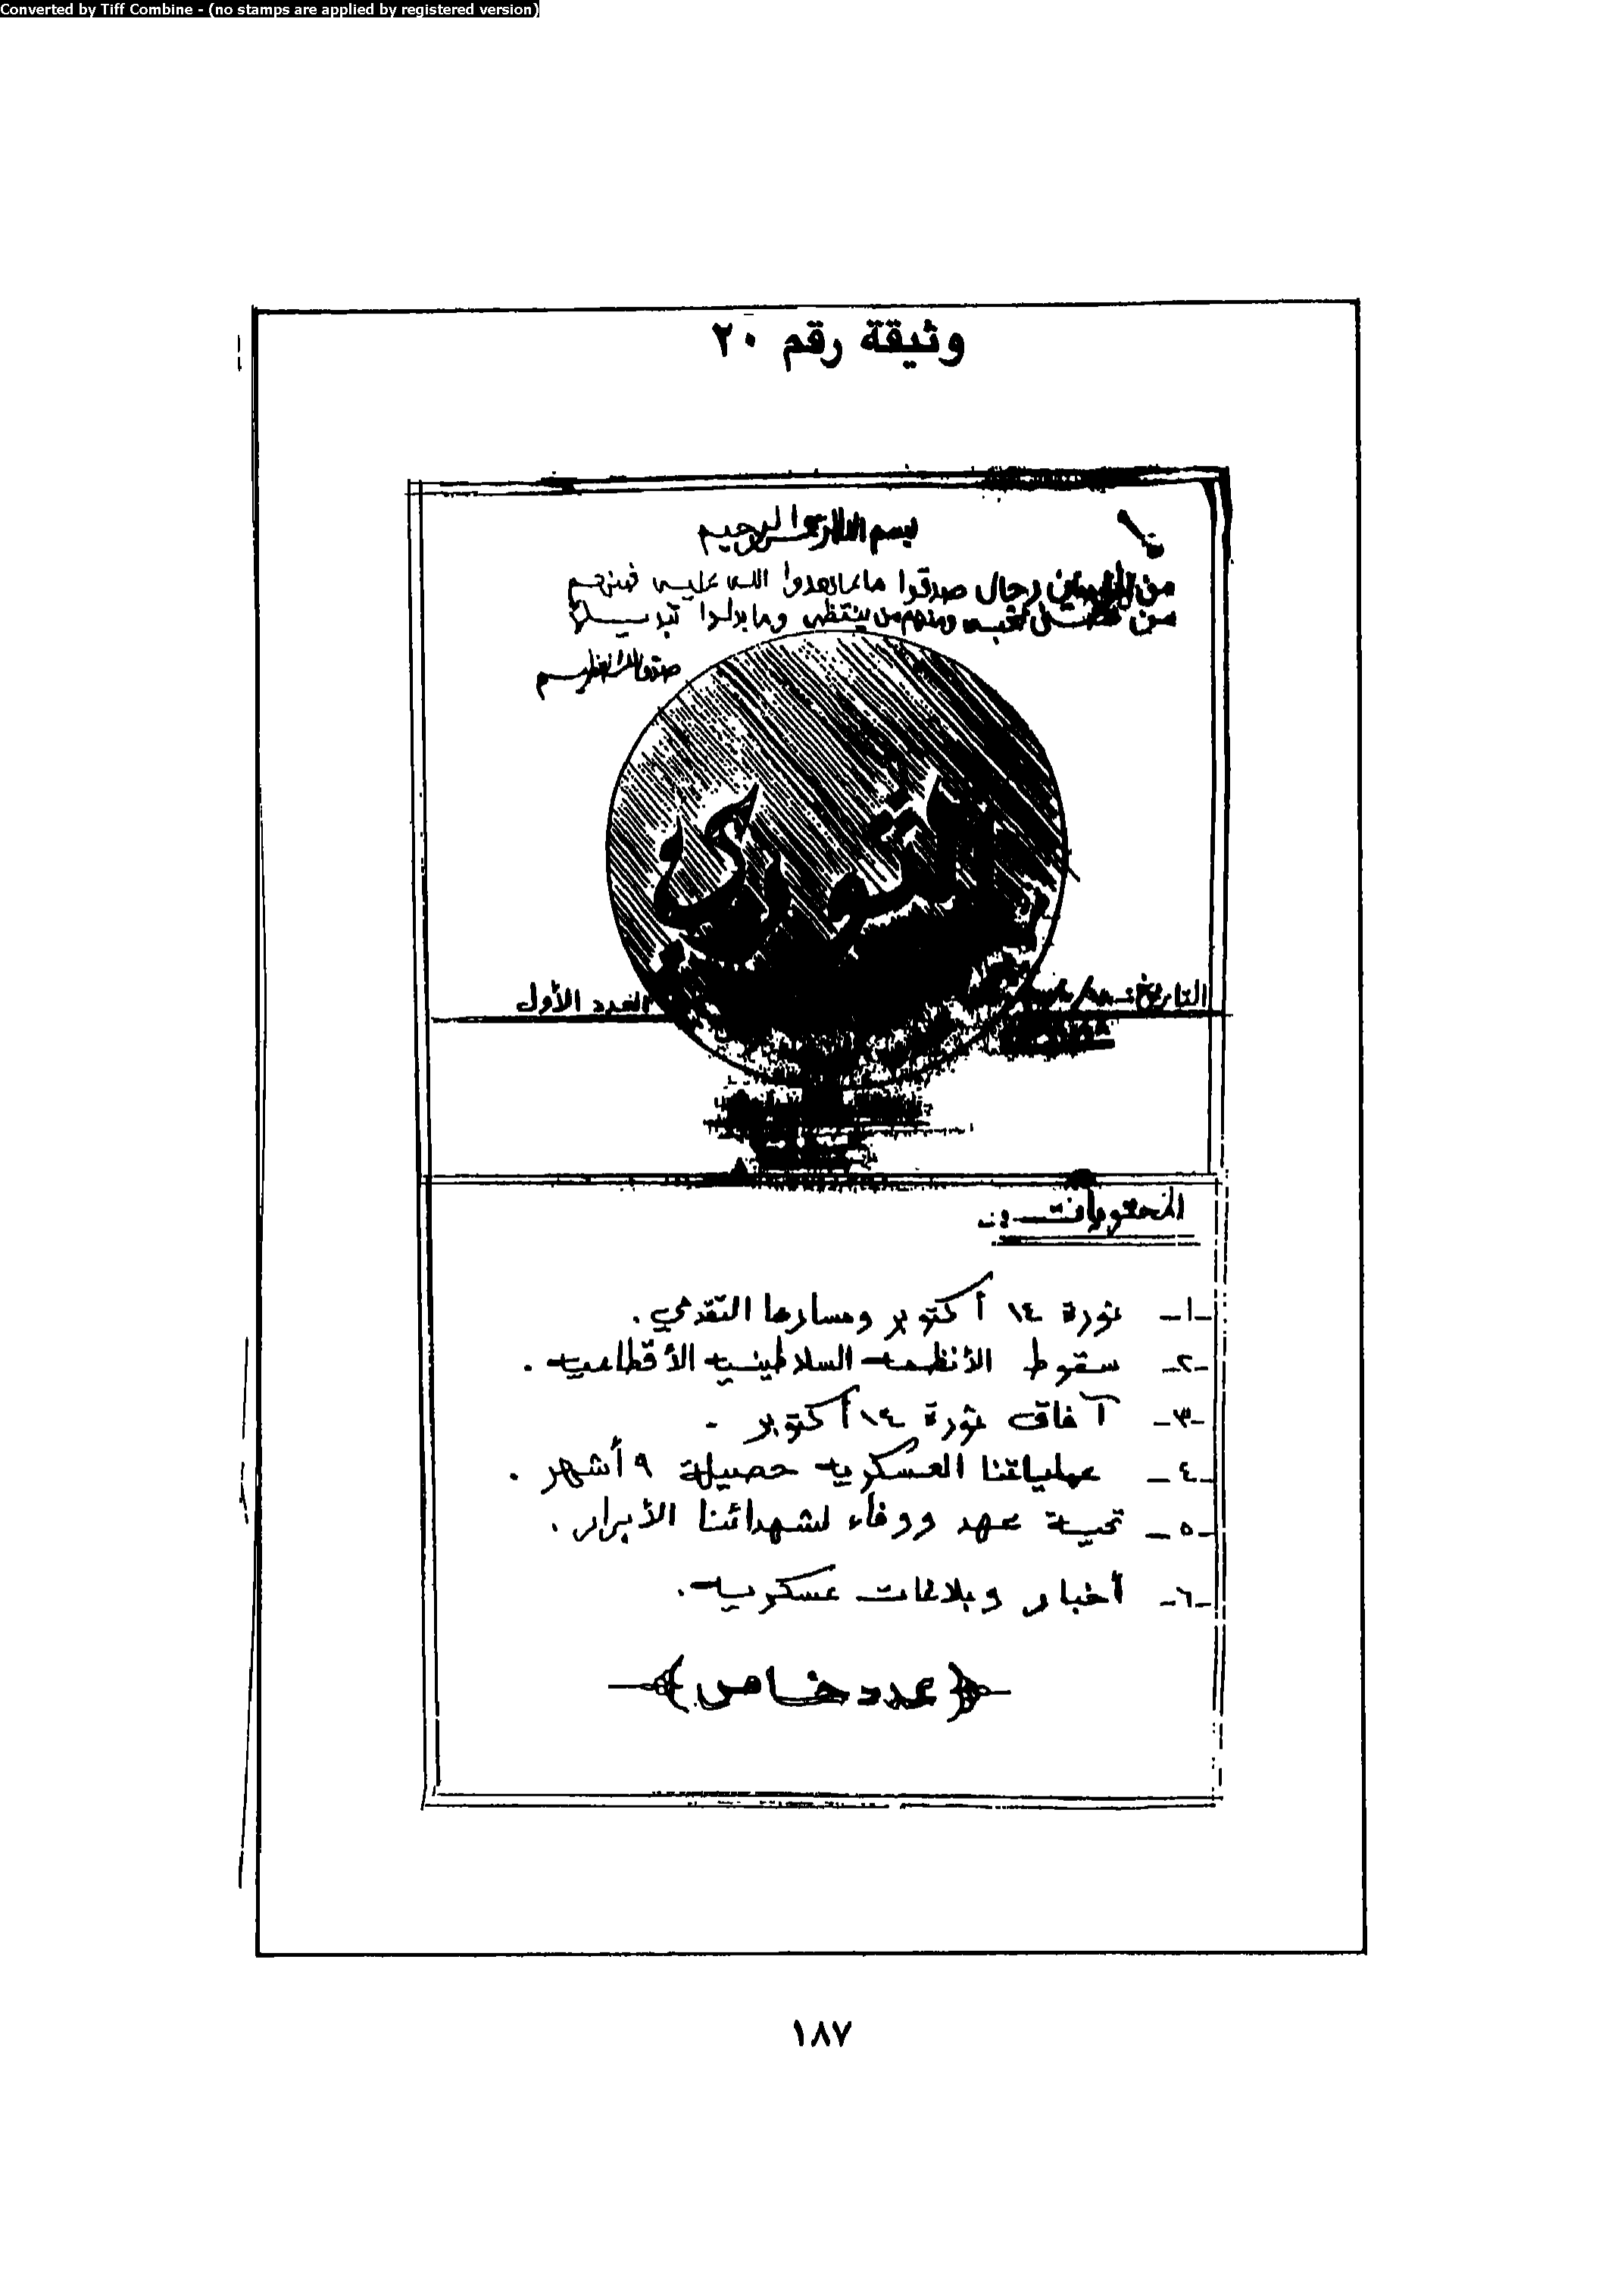 Converted by Tiff Combine - (no stamps are applied by registered version)
وثيقة رقم ٢٠
بسم الله الرحمن الرحيم
من المؤمنين رجال صدقوا ما عاهدوا الله عليه فمنهم
من قضى نحبه ومنهم من ينتظر وما بدلوا تبديلاً
صدق الله العظيم
التاريخ :-
العدد الأول
المحتويات :-
-١- ثورة ١٤ أكتوبر ومسارها التقدمي .
-٢- سقوط الأنظمة السلاطينية الأقطاعية .
-٣- آفاق ثورة ١٤ أكتوبر .
-٤- عملياتنا العسكرية حصيلة ٩ أشهر .
-٥- تحية عهد ووفاء لشهدائنا الأبرار .
-٦- أخبار وبلاغات عسكرية .
(عدد خاص)
١٨٧